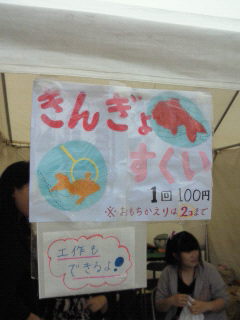 きんぎょ
すくい
1回 100円
※おもちかえりは2コまで
工作も
できるよ!